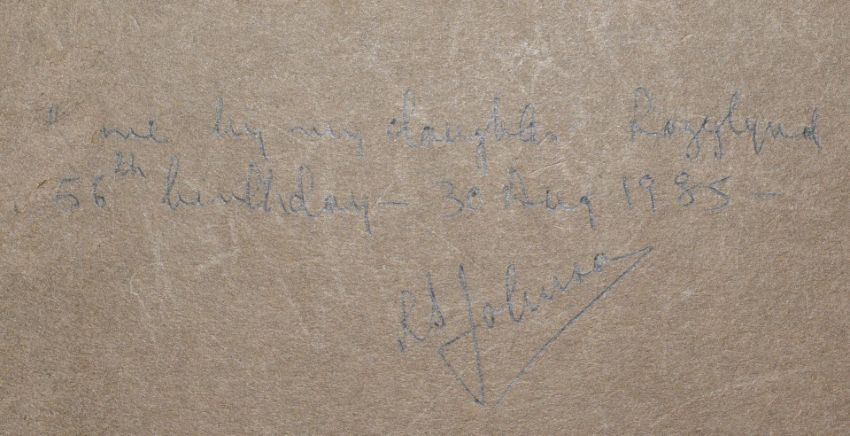 " me by my daughter Rozglynd
56th birthday - 30 Aug 1985 -
RS Johnson